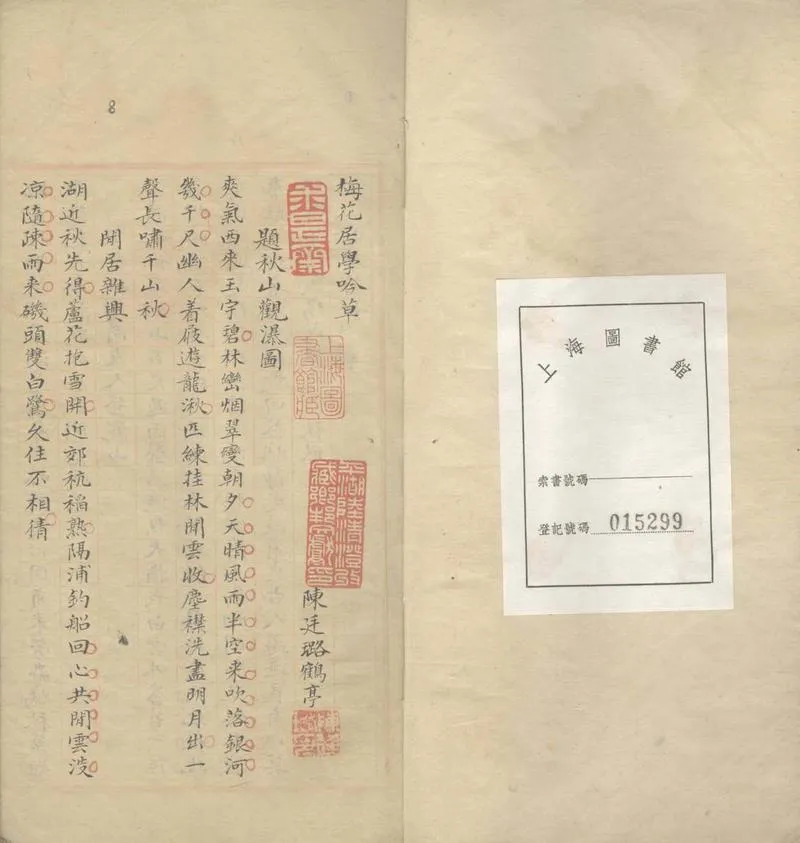 上海圖書館
索書號碼
登記號碼 015299
8
梅花居學吟草
上海圖書館藏
平湖陸清澄
臧鄉邦文獻印
陳廷璐鶴亭
題秋山觀瀑圖
爽氣西来玉宇碧林巒烟翠變朝夕天晴風雨半空来吹落銀河
幾千尺幽人着屐遊龍湫匹練挂林閒雲收塵襟洗盡明月出一
聲長嘯千山秋
閒居雜興
湖近秋先得蘆花抱雪開近郊秔稻熟隔浦釣船回心共閒雲
凉隨疎雨来磯頭雙白鷺久住不相猜